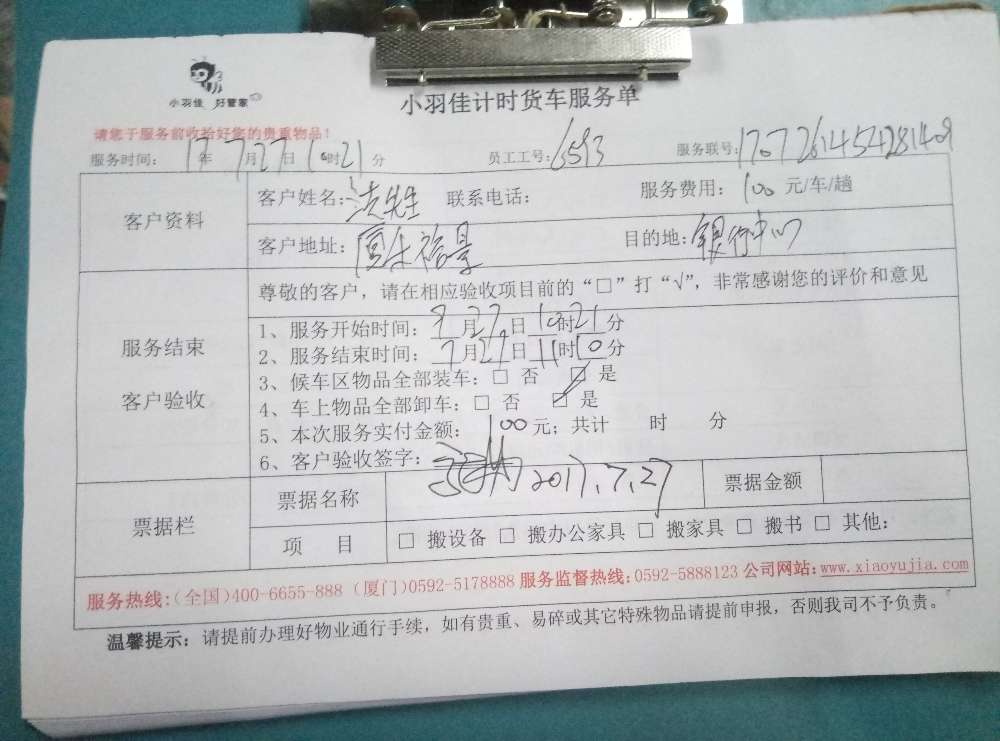 小羽佳 好管家
小羽佳计时货车服务单
请您于服务前收拾好您的贵重物品！
服务时间：17年7月27日10时21分 员工工号：6593 服务联号：1707261454281409
客户资料
客户姓名：先生 联系电话： 服务费用：100元/车/趟
客户地址：裕景 目的地：银行中心
尊敬的客户，请在相应验收项目前的“□”打“√”，非常感谢您的评价和意见
服务结束
客户验收
1、服务开始时间：7月27日10时21分
2、服务结束时间：7月27日11时10分
3、候车区物品全部装车：□ 否 □ 是
4、车上物品全部卸车：□ 否 □ 是
5、本次服务实付金额：100元；共计 时 分
6、客户验收签字：2017.7.27
票据栏
票据名称 票据金额
项 目 □ 搬设备 □ 搬办公家具 □ 搬家具 □ 搬书 □ 其他：
服务热线：（全国）400-6655-888（厦门）0592-5178888 服务监督热线：0592-5888123 公司网站：www.xiaoyujia.com
温馨提示：请提前办理好物业通行手续，如有贵重、易碎或其它特殊物品请提前申报，否则我司不予负责。